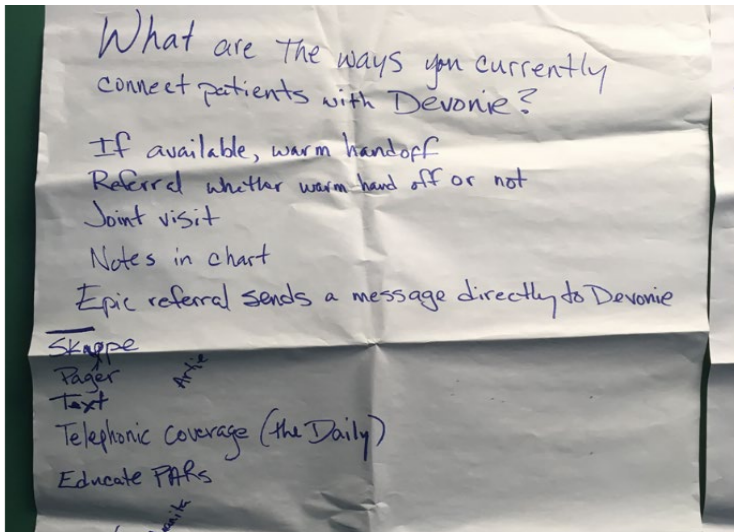 What are the ways you currently
connect patients with Devonie?
If available, warm handoff
Referral whether warm hand off or not
Joint visit
Notes in chart
Epic referral sends a message directly to Devonie
Skype
Pager
Artie
Text
Telephonic Coverage (the Daily)
Educate PARs